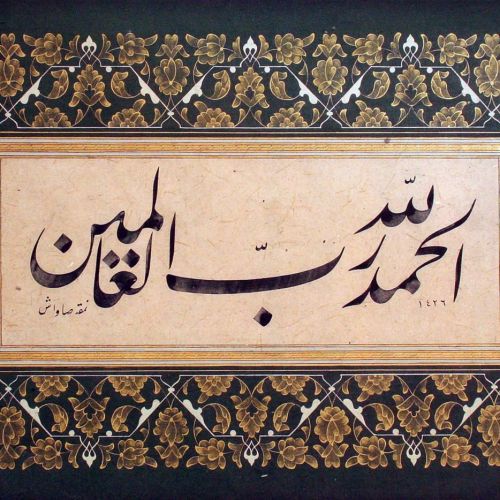 الحمد لله رب العالمين
١٤٢٦
نمقه صاواش